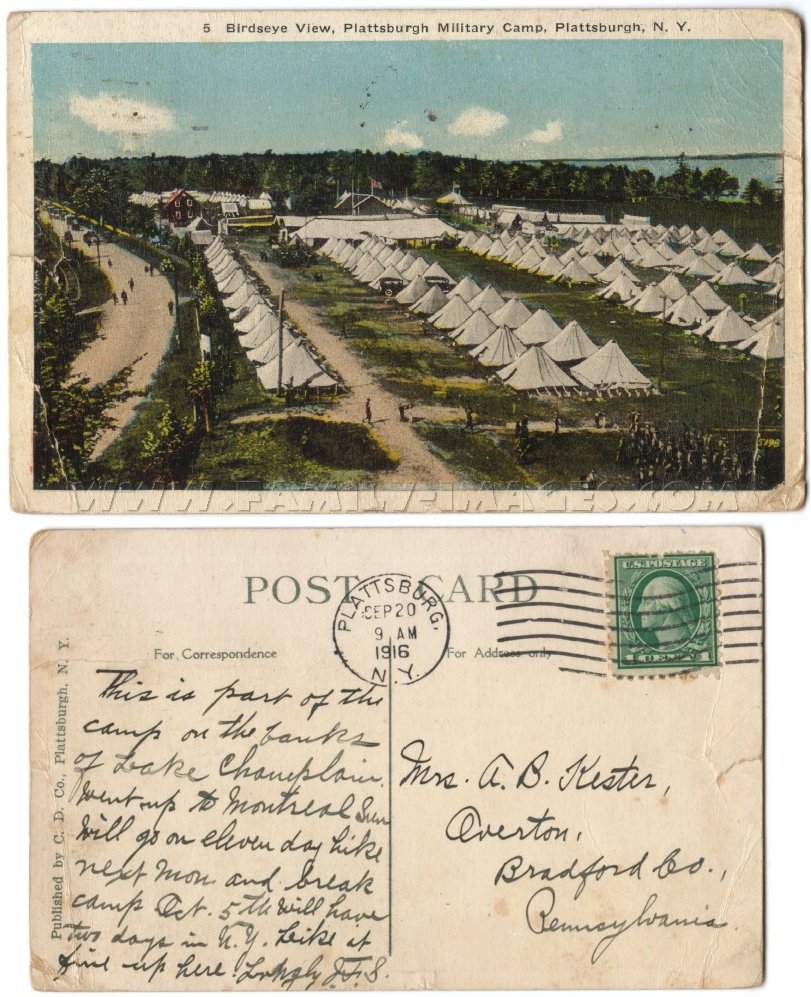 5 Birdseye View, Plattsburgh Military Camp, Plattsburgh, N. Y.
WWW.FAMILY-IMAGES.COM
POST CARD
PLATTSBURG,
SEP 20
9 AM
1916
N.Y.
U.S. POSTAGE
For Correspondence
For Address only
Published by C. D. Co., Plattsburgh, N. Y.
This is part of the
camp on the banks
of Lake Champlain.
Went up to Montreal Sun
Will go on eleven day hike
next Mon and break
camp Oct. 5th Will have
two days in N.Y. Like it
fine up here. J.F.S.
Mrs. A. B. Kester,
Overton,
Bradford Co.,
Pennsylvania.